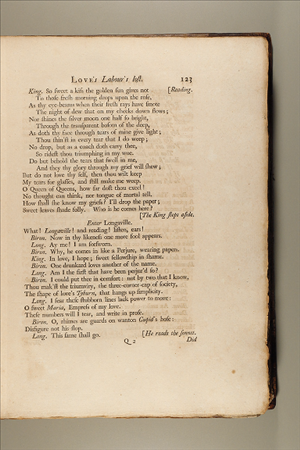 LOVE's Labour's lost. 123
King. So sweet a kiss the golden sun gives not [Reading.
To those fresh morning drops upon the rose,
As thy eye-beams when their fresh rays have smote
The night of dew that on my cheeks down flows;
Nor shines the silver moon one half so bright,
Through the transparent bosom of the deep,
As doth thy face through tears of mine give light;
Thou shin'st in every tear that I do weep;
No drop, but as a coach doth carry thee,
So ridest thou triumphing in my woe.
Do but behold the tears that swell in me,
And they thy glory through my grief will shew;
But do not love thy self, then thou wilt keep
My tears for glasses, and still make me weep.
O Queen of Queens, how far dost thou excel!
No thought can think, nor tongue of mortal tell.
How shall she know my griefs? I'll drop the paper;
Sweet leaves shade folly. Who is he comes here?
[The King steps aside.
Enter Longaville.
What! Longaville! and reading! listen, ear!
Biron. Now in thy likeness one more fool appears.
Long. Ay me! I am forsworn.
Biron. Why, he comes in like a Perjure, wearing papers.
King. In love, I hope; sweet fellowship in shame.
Biron. One drunkard loves another of the name.
Long. Am I the first that have been perjur'd so?
Biron. I could put thee in comfort: not by two that I know,
Thou mak'st the triumviry, the three-corner cap of society,
The shape of love's Tyburn, that hangs up simplicity.
Long. I fear these stubborn lines lack power to move:
O sweet Maria, Empress of my love,
These numbers will I tear, and write in prose.
Biron. O, rhimes are guards on wanton Cupid's hose:
Disfigure not his slop.
Long. This same shall go. [He reads the sonnet.
Q 2 Did